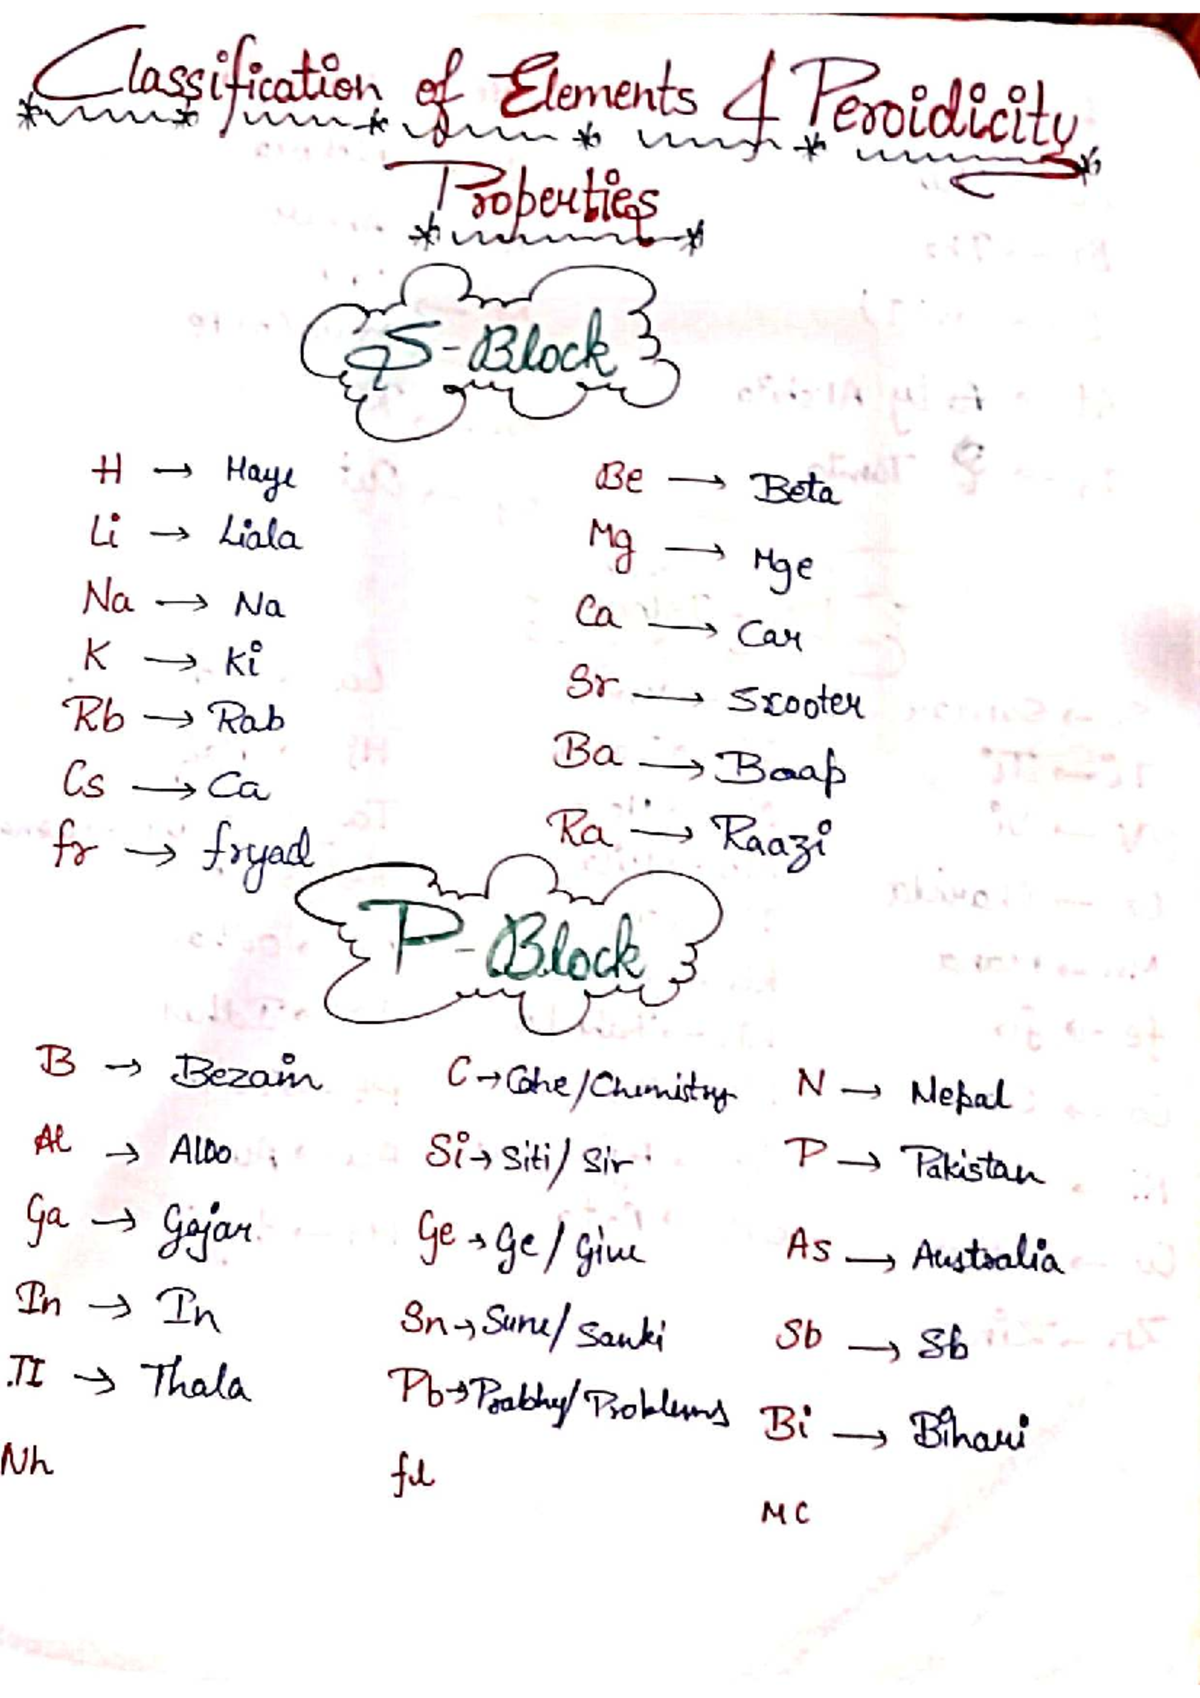 Classification of Elements & Peroidicity
Properties
S-Block
H → Haye
Li → Liala
Na → Na
K → Ki
Rb → Rab
Cs → Ca
fr → fryad
Be → Beta
Mg → Mge
Ca → Car
Sr → Scooter
Ba → Baap
Ra → Raazi
P-Block
B → Bezain
Al → Aloo
Ga → Gajar
In → In
TI → Thala
Nh
C → Cahe/Chemistry
Si → Siti/Sir
Ge → Ge/Give
Sn → Sune/Sanki
Pb → Prabhy/Problems
fl
N → Nepal
P → Pakistan
As → Australia
Sb → Sb
Bi → Bihari
MC